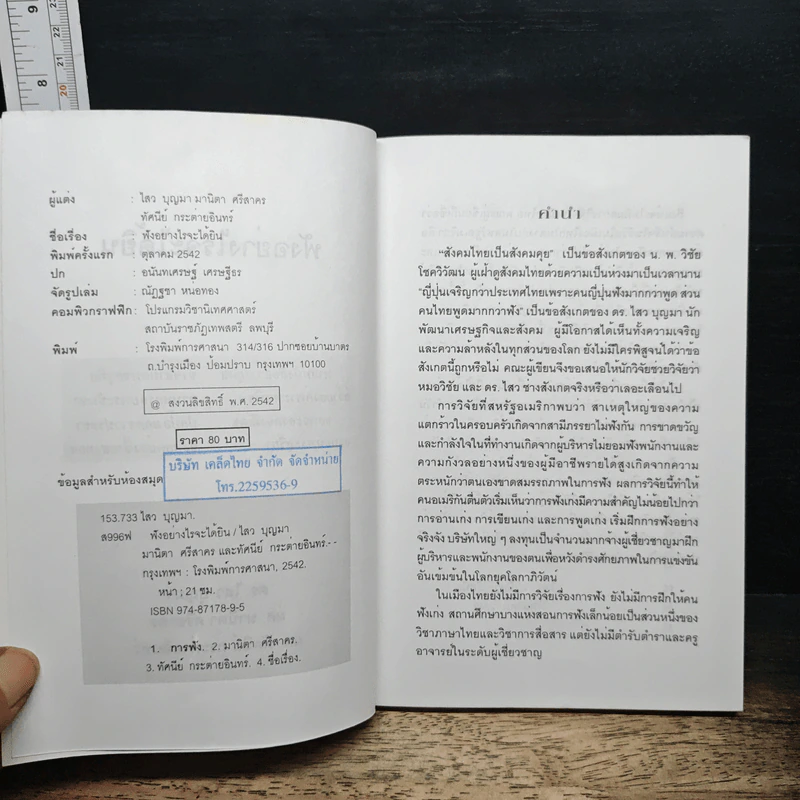 9
8
23
22
21
20
ผู้แต่ง : ไสว บุญมา มานิตา ศรีสาคร
ทัศนีย์ กระต่ายอินทร์
ชื่อเรื่อง : ฟังอย่างไรจะได้ยิน
พิมพ์ครั้งแรก : ตุลาคม 2542
ปก : อนันทเศรษฐ์ เศรษฐีธร
จัดรูปเล่ม : ณัฏฐชา หน่อทอง
คอมพิวกราฟฟิก : โปรแกรมวิชานิเทศศาสตร์
สถาบันราชภัฏเทพสตรี ลพบุรี
พิมพ์ : โรงพิมพ์การศาสนา 314/316 ปากซอยบ้านบาตร
ถ.บำรุงเมือง ป้อมปราบ กรุงเทพฯ 10100
@ สงวนลิขสิทธิ์ พ.ศ. 2542
ราคา 80 บาท
บริษัท เคล็ดไทย จำกัด จัดจำหน่าย
โทร.2259536-9
ข้อมูลสำหรับห้องสมุด
153.733 ไสว บุญมา.
ส996ฟ ฟังอย่างไรจะได้ยิน / ไสว บุญมา
มานิตา ศรีสาคร และทัศนีย์ กระต่ายอินทร์.--
กรุงเทพฯ : โรงพิมพ์การศาสนา, 2542.
หน้า ; 21 ซม.
ISBN 974-87178-9-5
1. การฟัง. 2. มานิตา ศรีสาคร.
3. ทัศนีย์ กระต่ายอินทร์. 4. ชื่อเรื่อง.
คำนำ
“สังคมไทยเป็นสังคมคุย” เป็นข้อสังเกตของ น. พ. วิชัย
โชควิวัฒน ผู้เฝ้าดูสังคมไทยด้วยความเป็นห่วงมาเป็นเวลานาน
“ญี่ปุ่นเจริญกว่าประเทศไทยเพราะคนญี่ปุ่นฟังมากกว่าพูด ส่วน
คนไทยพูดมากกว่าฟัง” เป็นข้อสังเกตของ ดร. ไสว บุญมา นัก
พัฒนาเศรษฐกิจและสังคม ผู้มีโอกาสได้เห็นทั้งความเจริญ
และความล้าหลังในทุกส่วนของโลก ยังไม่มีใครพิสูจน์ได้ว่าข้อ
สังเกตนี้ถูกหรือไม่ คณะผู้เขียนจึงขอเสนอให้นักวิจัยช่วยวิจัยว่า
หมอวิชัย และ ดร. ไสว ช่างสังเกตจริงหรือว่าเลอะเลือนไป
การวิจัยที่สหรัฐอเมริกาพบว่า สาเหตุใหญ่ของความ
แตกร้าวในครอบครัวเกิดจากสามีภรรยาไม่ฟังกัน การขาดขวัญ
และกำลังใจในที่ทำงานเกิดจากผู้บริหารไม่ยอมฟังพนักงานและ
ความกังวลอย่างหนึ่งของผู้มีอาชีพรายได้สูงเกิดจากความ
ตระหนักว่าตนเองขาดสมรรถภาพในการฟัง ผลการวิจัยนี้ทำให้
คนอเมริกันตื่นตัวเริ่มเห็นว่าการฟังเก่งมีความสำคัญไม่น้อยไปกว่า
การอ่านเก่ง การเขียนเก่ง และการพูดเก่ง เริ่มฝึกการฟังอย่าง
จริงจัง บริษัทใหญ่ ๆ ลงทุนเป็นจำนวนมากจ้างผู้เชี่ยวชาญมาฝึก
ผู้บริหารและพนักงานของตนเพื่อหวังดำรงศักยภาพในการแข่งขัน
อันเข้มข้นในโลกยุคโลกาภิวัตน์
ในเมืองไทยยังไม่มีการวิจัยเรื่องการฟัง ยังไม่มีการฝึกให้คน
ฟังเก่ง สถานศึกษาบางแห่งสอนการฟังเล็กน้อยเป็นส่วนหนึ่งของ
วิชาภาษาไทยและวิชาการสื่อสาร แต่ยังไม่มีตำรับตำราและครู
อาจารย์ในระดับผู้เชี่ยวชาญ